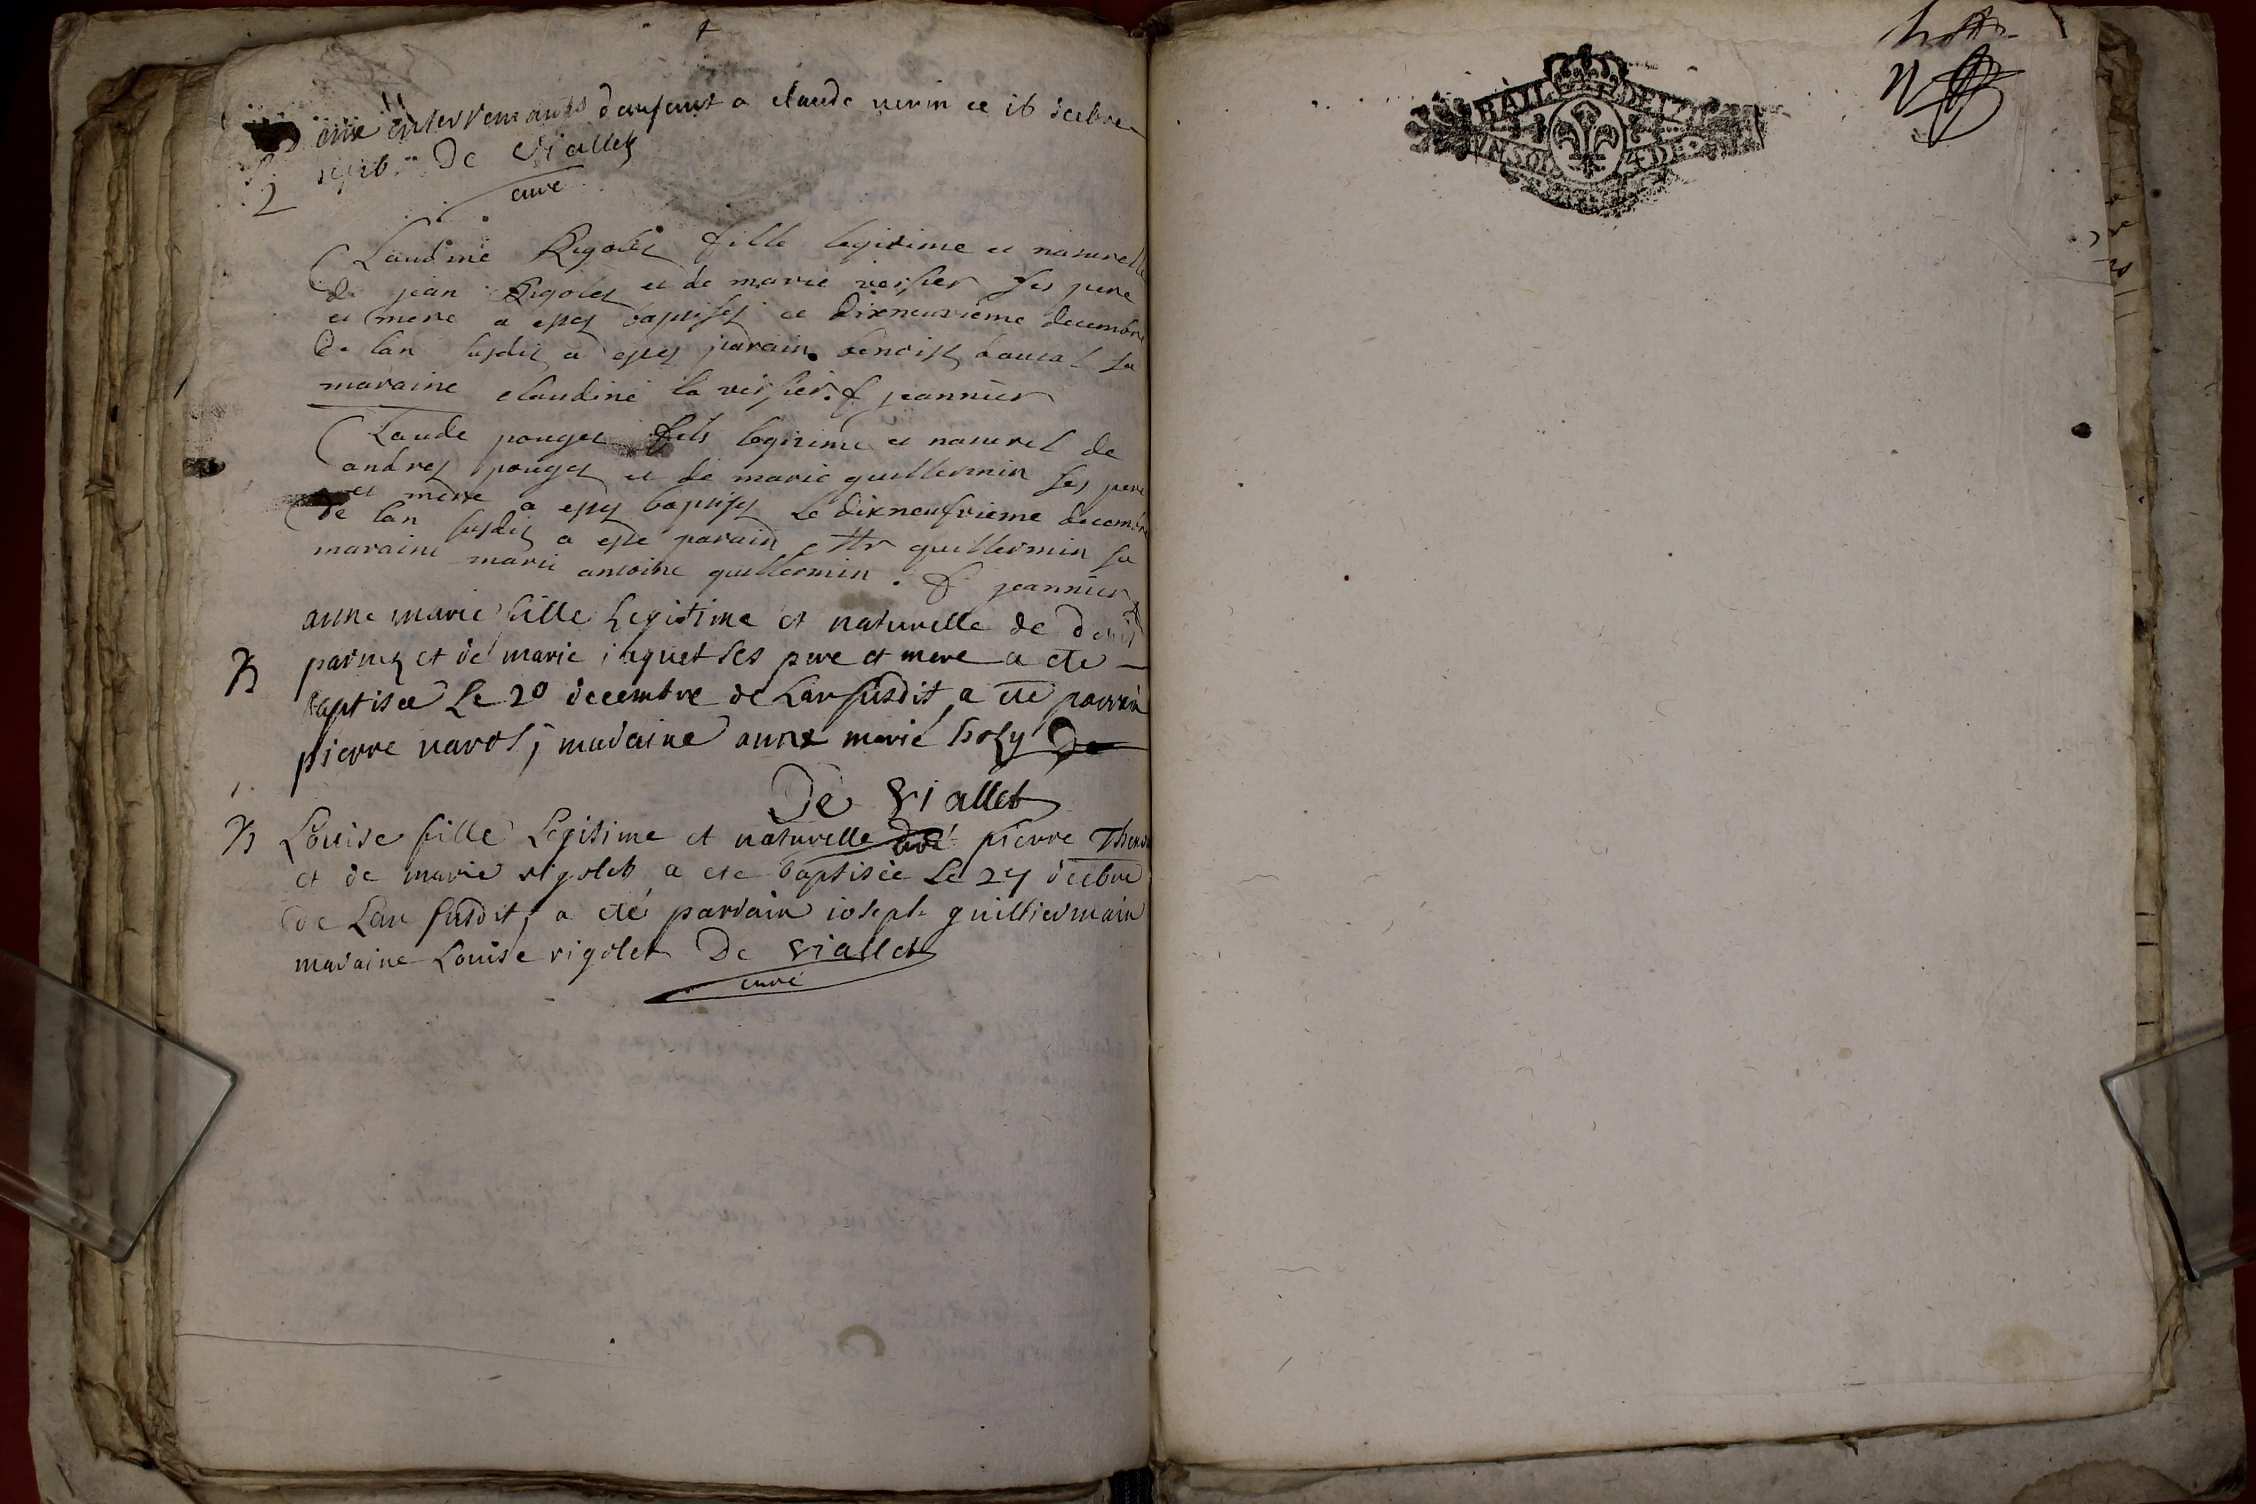 enterrements d'enfant a claude verin ce 16 decbre
De Viallet
curé
Claudine Rigolet fille legitime et naturelle
de jean Rigolet et de marie vessier ses pere
et mere a estet baptiset ce dixneuvieme decembre
de lan susdit a estet parain benoist sa
maraine claudine la vessier. f jeannier
Claude pouget fils legitime et naturel de
andrey pouget et de marie guillermin ses pere
et mere a estet baptiset le dixneufvieme decembre
de lan susdit a este parain guillermin sa
maraine marie antoine guillermin. f jeannier
anne marie fille Legitime et naturelle de denis
et de marie jaquet ses pere et mere a ete
baptisee Le 20 decembre de Lan susdit a ete parrain
pierre maraine anne marie
De Viallet
curé
Louise fille Legitime et naturelle de pierre
et de marie rigolet a ete baptisée Le 24 decbre
de Lan susdit, a été parrain joseph guilliermain
maraine Louise rigolet De Viallet
curé